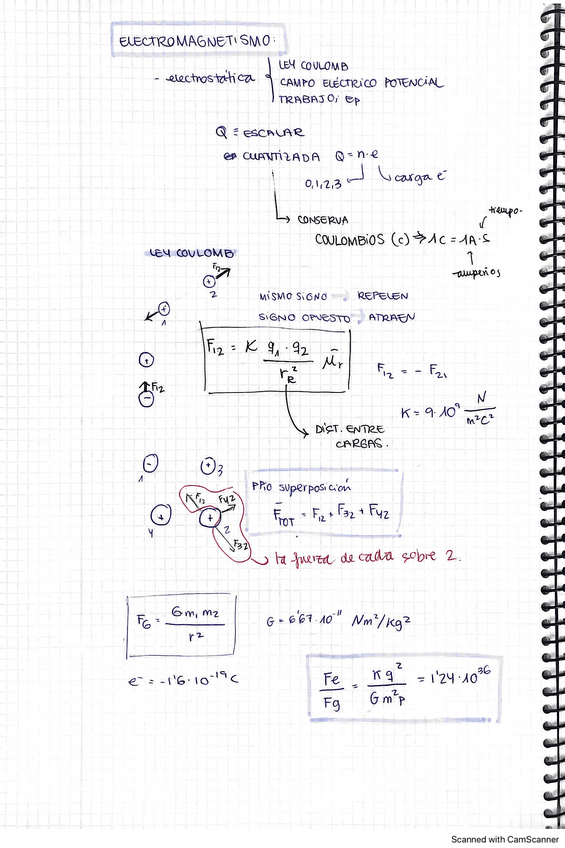 ELECTROMAGNETISMO:
- electrostática
LEY COULOMB
CAMPO ELÉCTRICO POTENCIAL
TRABAJO, Ep
Q = ESCALAR
CUANTIZADA Q = n·e
0,1,2,3
carga e⁻
CONSERVA
tiempo.
COULOMBIOS (C) → 1C = 1A·S
amperios
LEY COULOMB
F₁₂
+
2
+
1
MISMO SIGNO → REPELEN
SIGNO OPUESTO → ATRAEN
F₁₂ = K q₁·q₂ / r_R² μ̄r
+
F₁₂
-
F₁₂ = - F₂₁
K = 9·10⁹ N / m²C²
DIST. ENTRE
CARGAS.
1 -
+ 3
PPIO superposición
F̄TOT = F₁₂ + F₃₂ + F₄₂
F₁₂
F₄₂
4 +
+ 2
F₃₂
la fuerza de cada sobre 2.
F_G = G m₁ m₂ / r²
G = 6'67·10⁻¹¹ Nm²/kg²
e⁻ = -1'6·10⁻¹⁹ C
Fe / Fg = K q² / G m²p = 1'24·10³⁶
Scanned with CamScanner